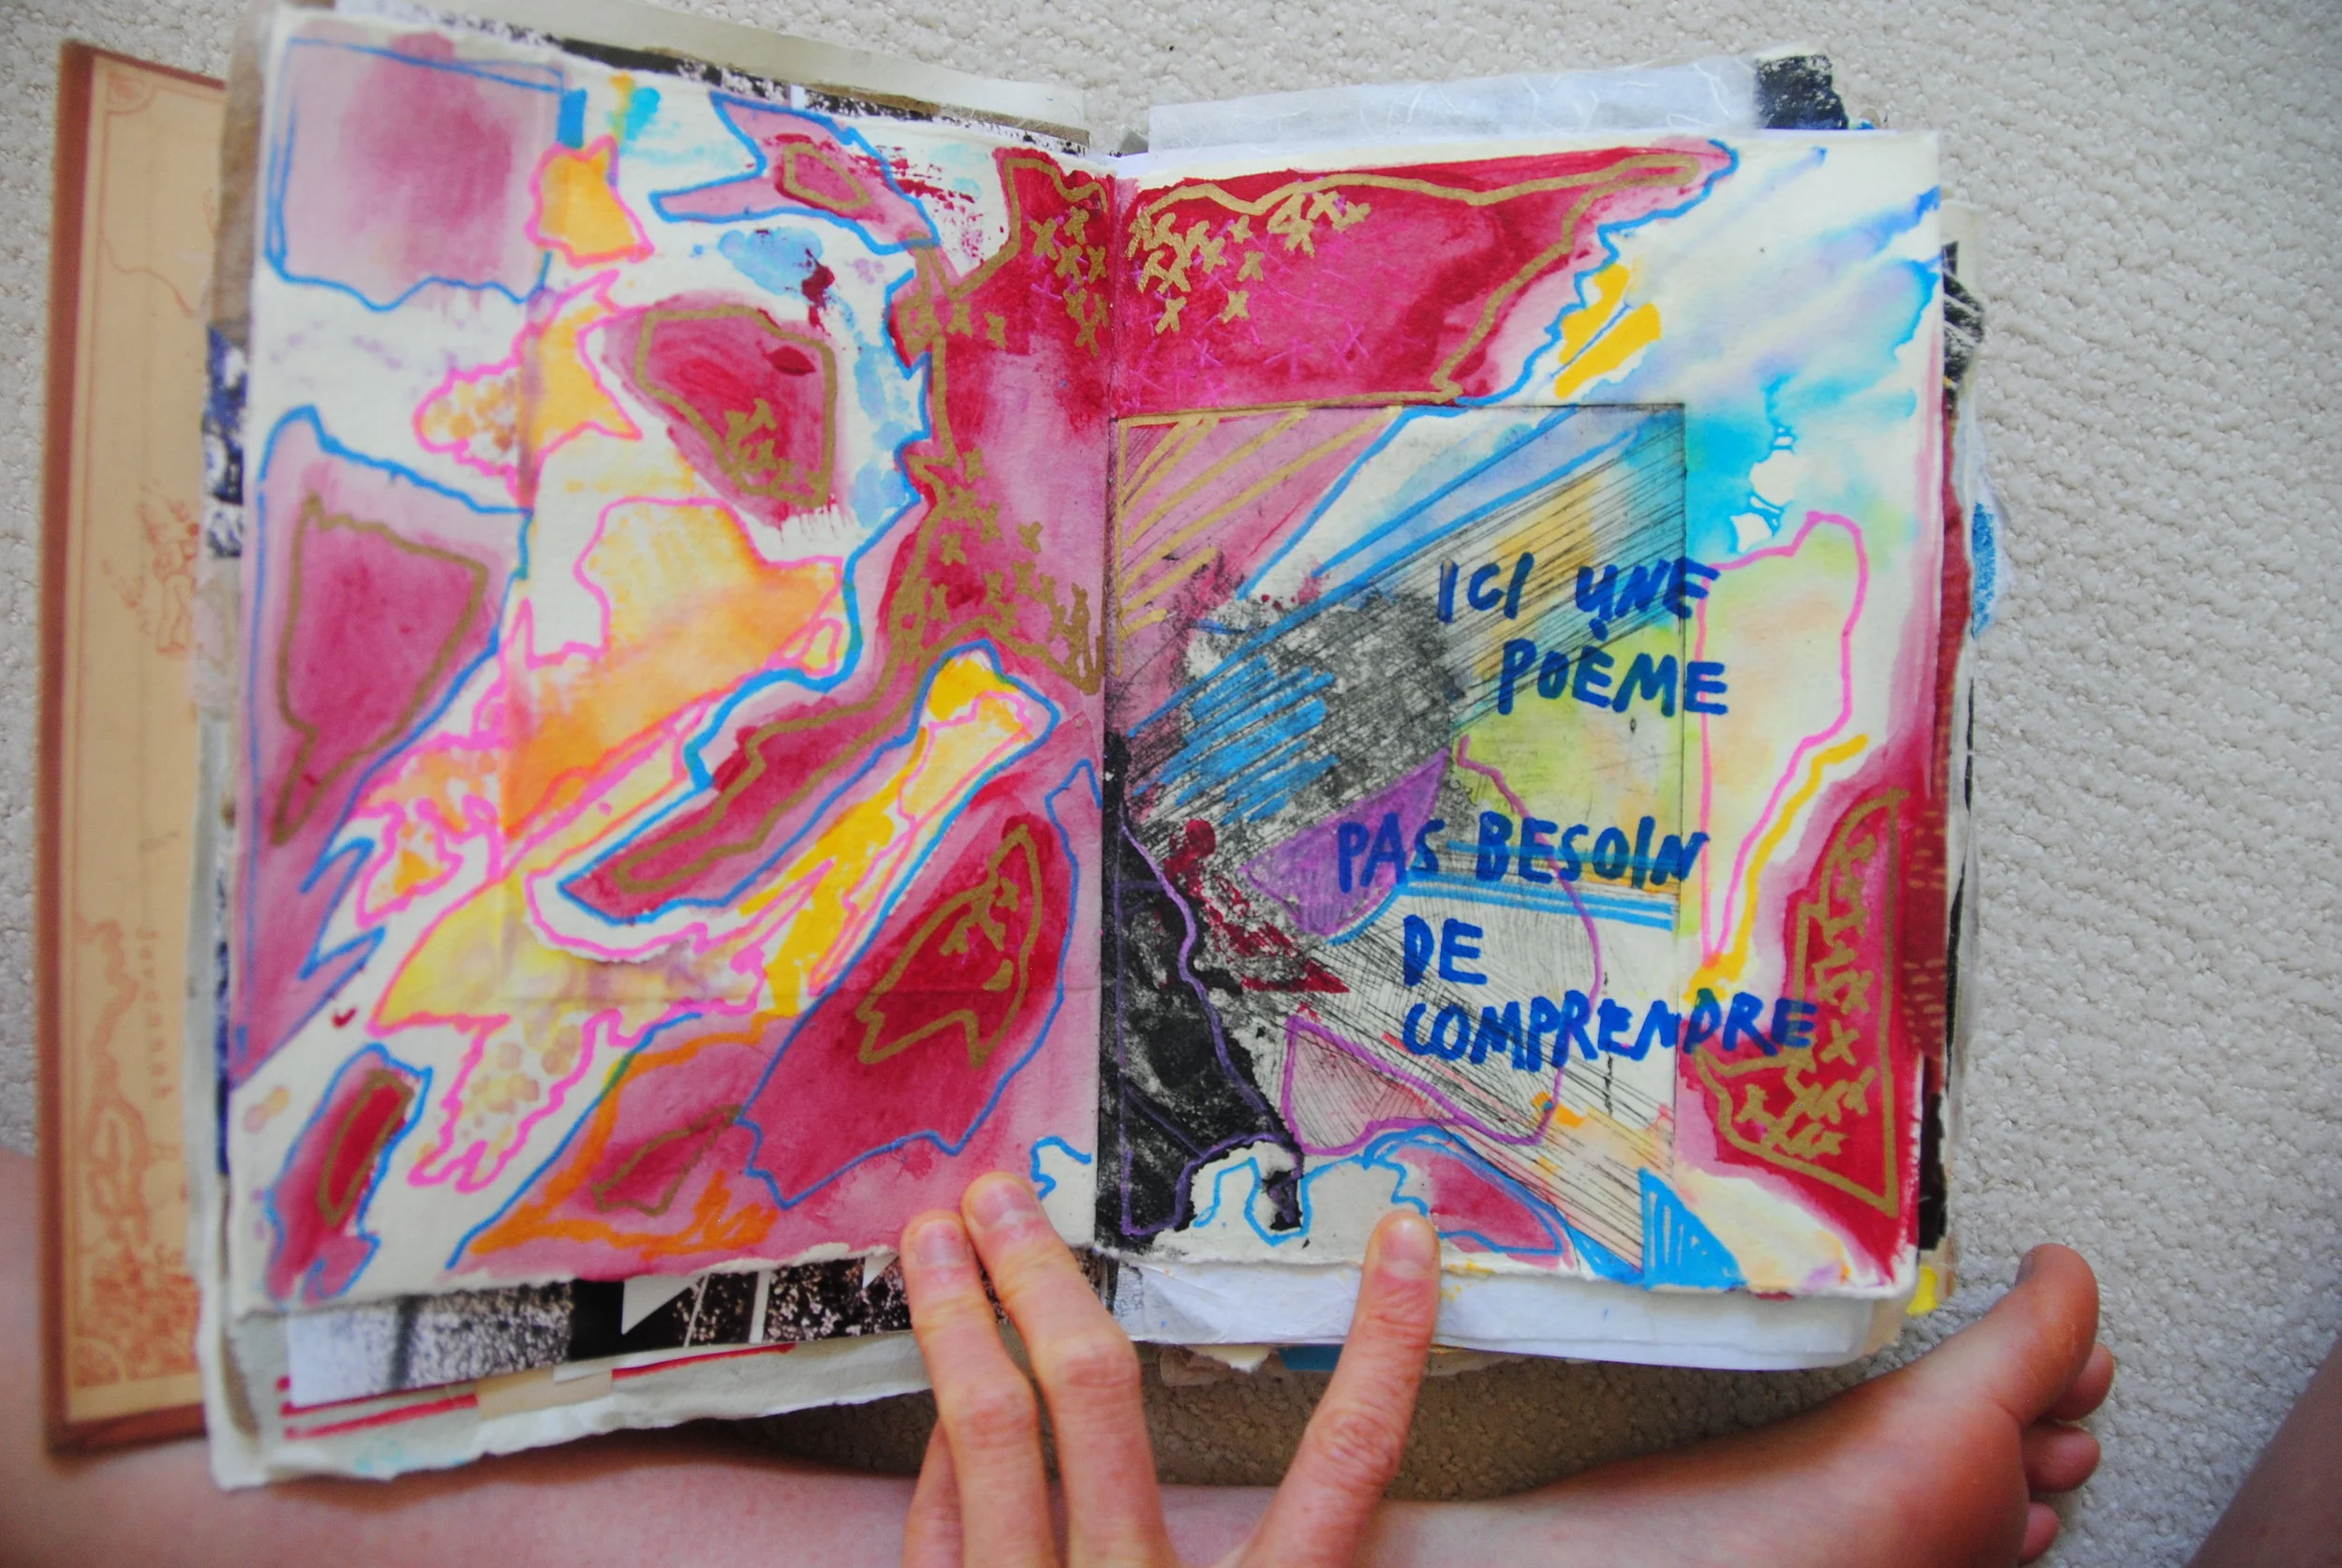 ICI UNE
POÈME
PAS BESOIN
DE
COMPRENDRE